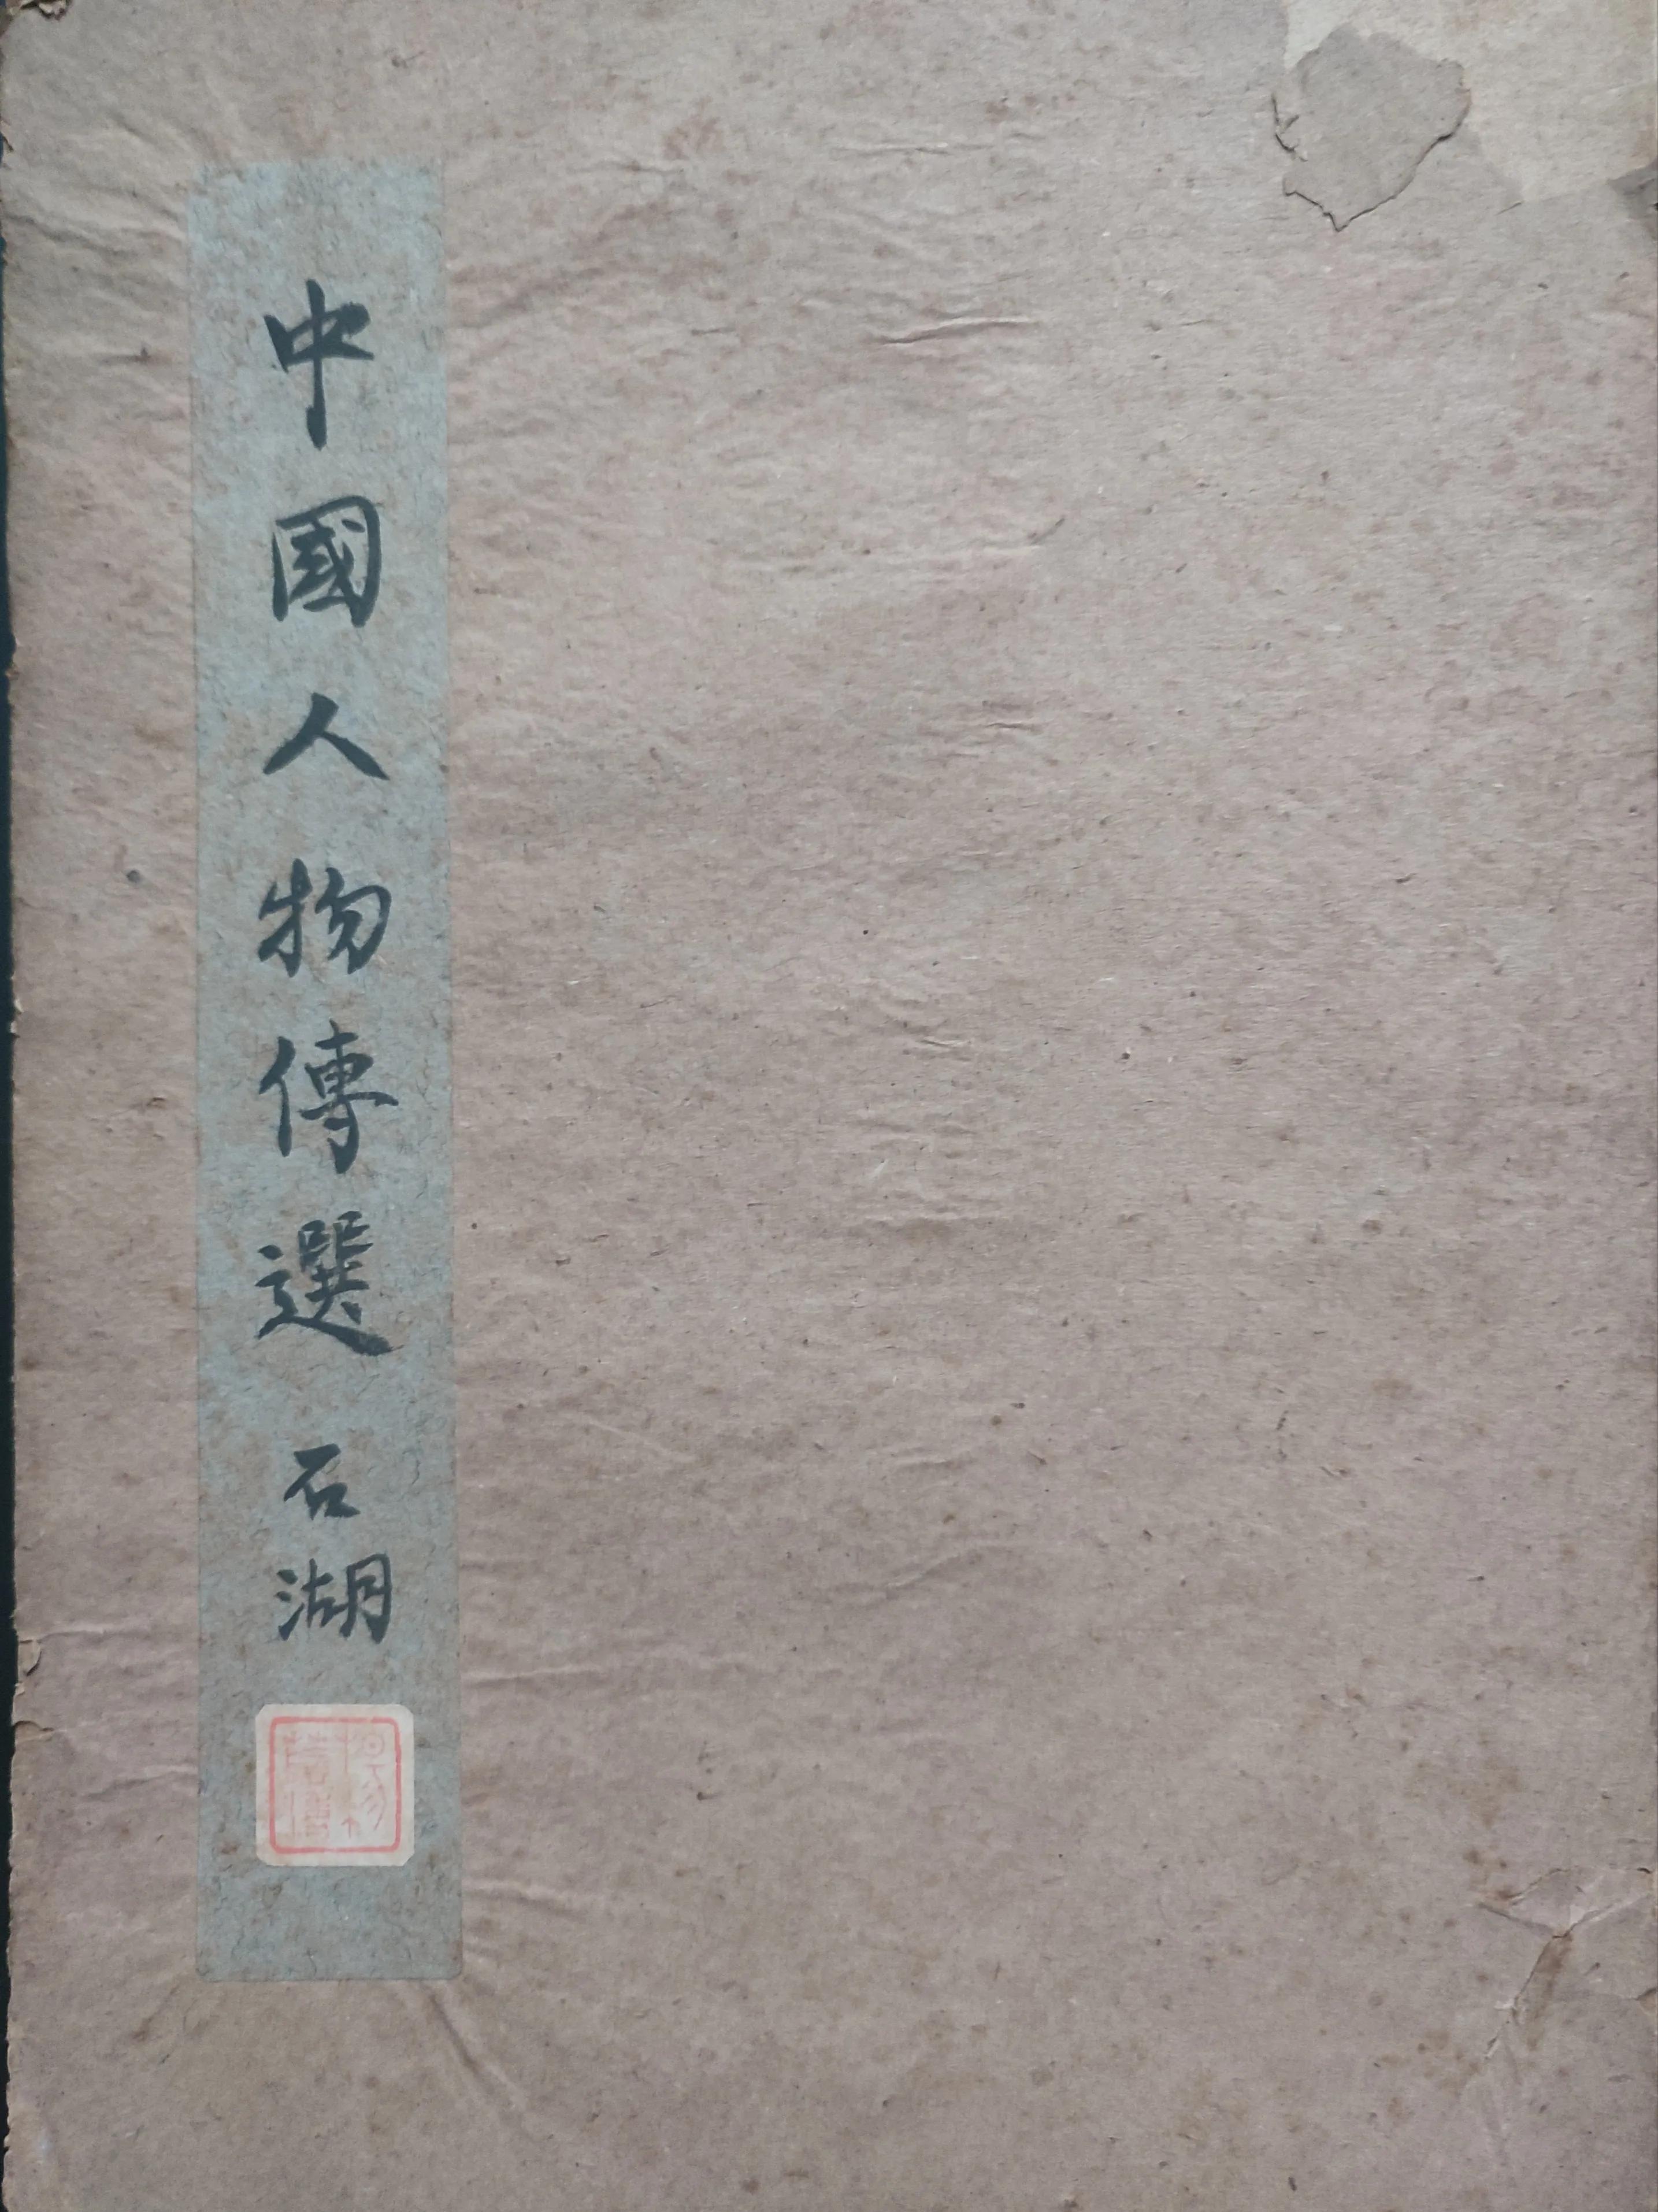 中國人物傳選 石湖